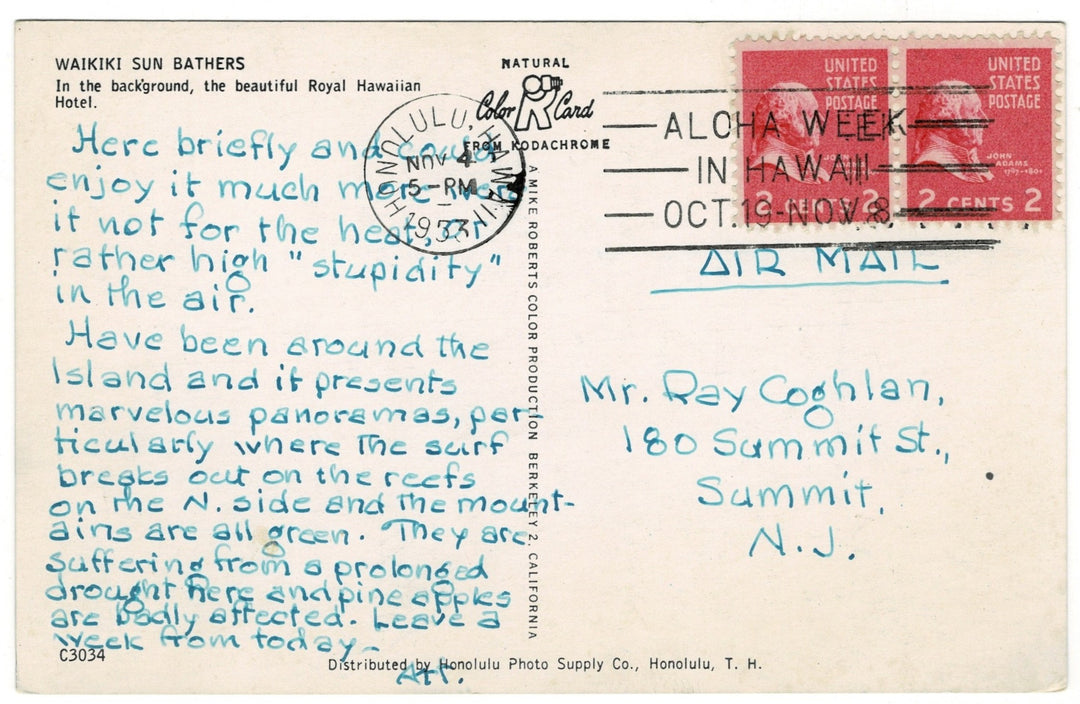 WAIKIKI SUN BATHERS
In the background, the beautiful Royal Hawaiian
Hotel.
NATURAL
Color Card
FROM KODACHROME
HONOLULU, HAWAII
NOV 4
5-PM
1953
ALOHA WEEK
IN HAWAII
OCT.19-NOV.8
UNITED
STATES
POSTAGE
2 CENTS 2
UNITED
STATES
POSTAGE
JOHN
ADAMS
1797-1801
2 CENTS 2
Here briefly and could
enjoy it much more were
it not for the heat, or
rather high "stupidity"
in the air.
Have been around the
Island and it presents
marvelous panoramas, par-
ticularly where the surf
breaks out on the reefs
on the N. side and the mount-
ains are all green. They are
suffering from a prolonged
drought here and pineapples
are badly affected. Leave a
week from today-
Art.
C3034
A MIKE ROBERTS COLOR PRODUCTION BERKELEY 2, CALIFORNIA
AIR MAIL
Mr. Ray Coghlan,
180 Summit St.,
Summit,
N.J.
Distributed by Honolulu Photo Supply Co., Honolulu, T. H.